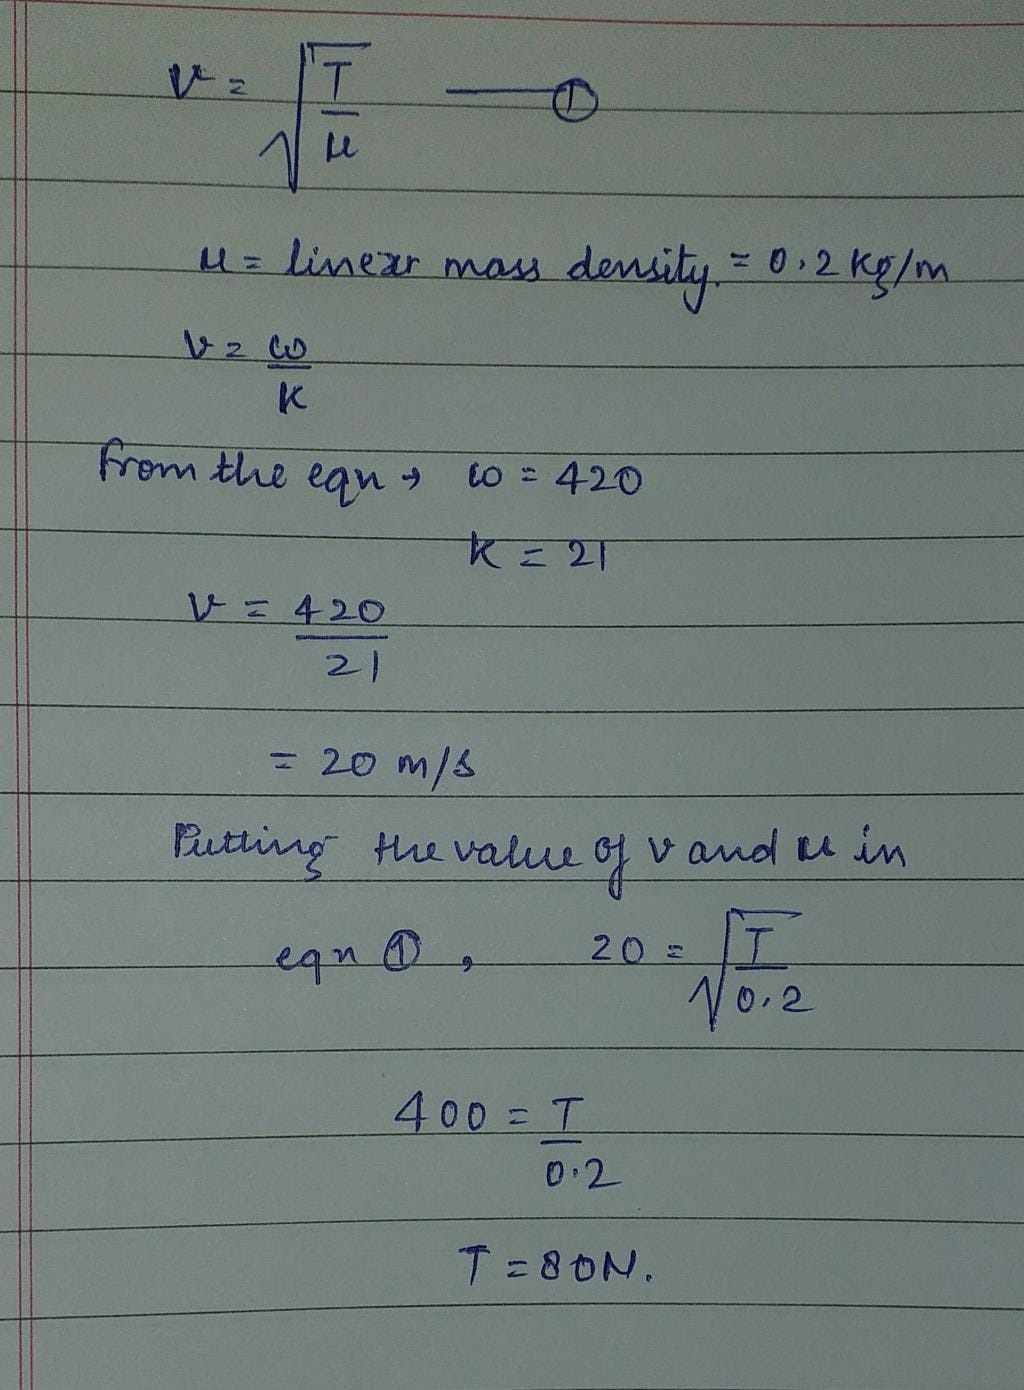 v = √(T/μ) —— ①
μ = linear mass density. = 0.2 kg/m
v = ω/k
From the eqn → ω = 420
k = 21
v = 420/21
= 20 m/s
Putting the value of v and μ in
eqn ①, 20 = √(T/0.2)
400 = T/0.2
T = 80N.